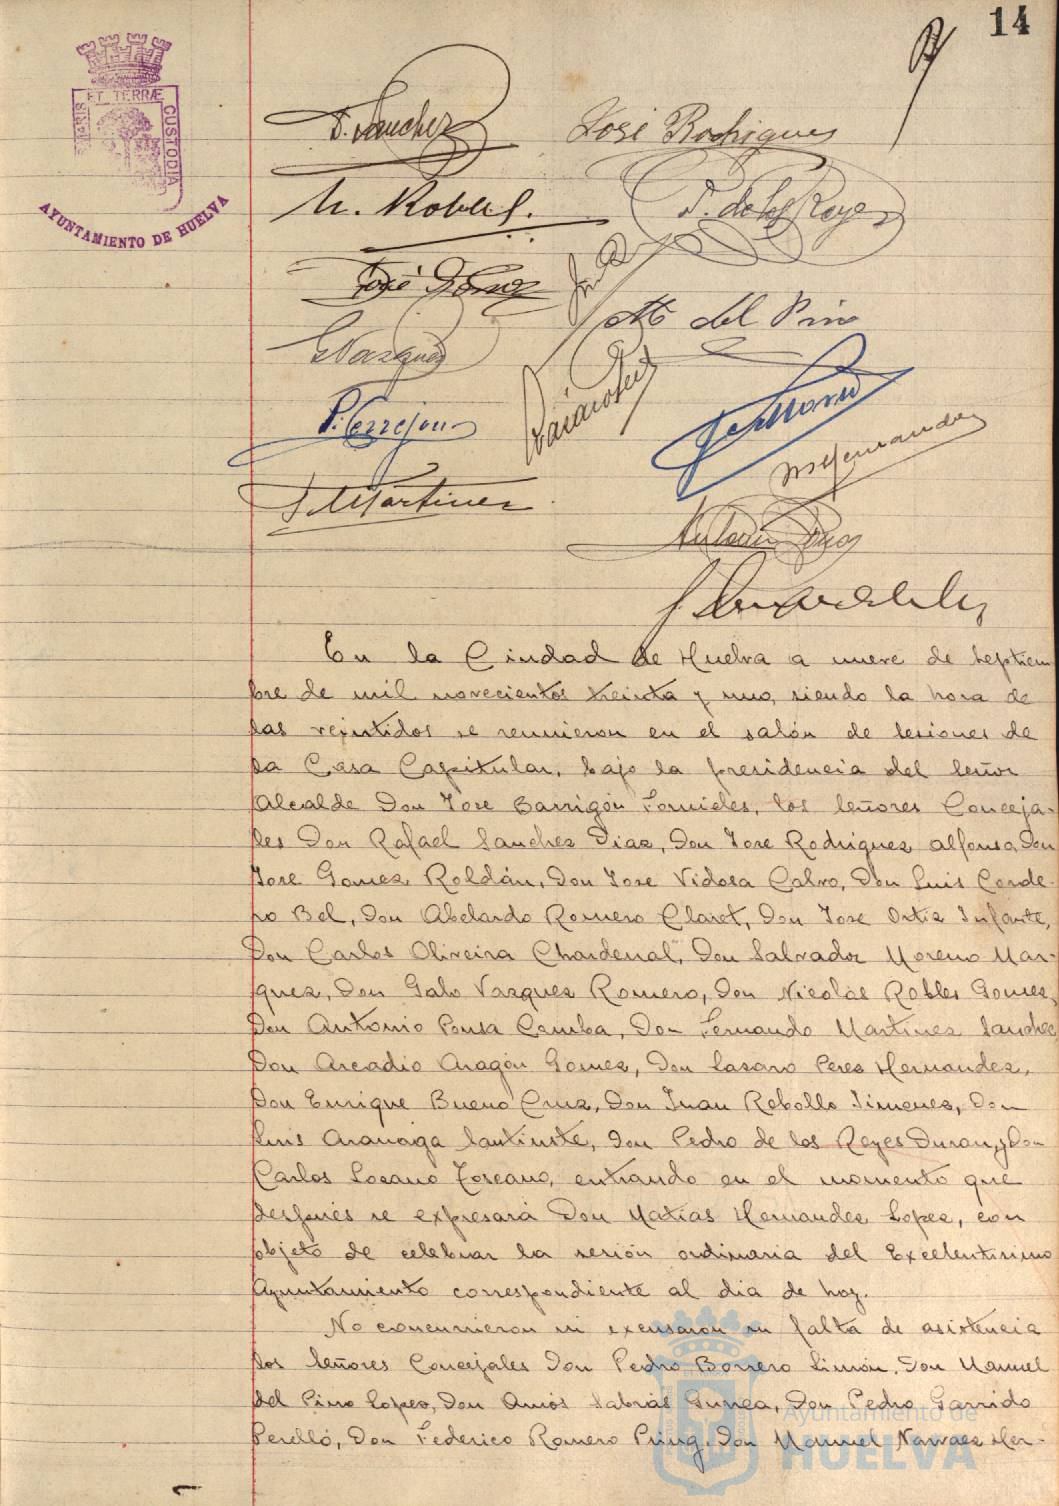 14
ET TERRÆ
MARIS
CUSTODIA
AYUNTAMIENTO DE HUELVA
Sanchez
José Rodriguez
N. Robles.
P. de los Reyes
José
M del Pino
GVazquez
P. Cerrejon
Moreno
MHernandez
F Martinez
Antonio
En la Ciudad de Huelva a nueve de septiem
bre de mil novecientos treinta y uno, siendo la hora de
las veintidos se reunieron en el salón de sesiones de
la Casa Capitular, bajo la presidencia del señor
Alcalde Don Jose Barrigón Fornieles, los señores Conceja-
les Don Rafael Sanchez Diaz, Don Jose Rodriguez Alfonso, Don
Jose Gomez Roldán, Don Jose Vidosa Calvo, Don Luis Corde-
ro Bel, Don Abelardo Romero Claret, Don Jose Ortiz Infante,
Don Carlos Oliveira Chardenal, Don Salvador Moreno Mar-
quez, Don Galo Vazquez Romero, Don Nicolás Robles Gomez,
Don Antonio Pousa Camba, Don Fernando Martinez Sanchez,
Don Arcadio Aragón Gomez, Don Lazaro Perez Hernandez,
Don Enrique Bueno Cruz, Don Juan Rebollo Jimenez, Don
Luis Aranaga Don Pedro de los Reyes Duran, y Don
Carlos Lozano Toscano, entrando en el momento que
después se expresará Don Matias Hernandez Lopez, con
objeto de celebrar la sesión ordinaria del Excelentisimo
Ayuntamiento correspondiente al dia de hoy.
No concurrieron ni excusaron su falta de asistencia
los señores Concejales Don Pedro Borrero Limón, Don Manuel
del Pino Lopez, Don Amós Sabrás Gurrea, Don Pedro Garrido
Perelló, Don Federico Romero Don Manuel Narvaez Her-
Ayuntamiento de
HUELVA